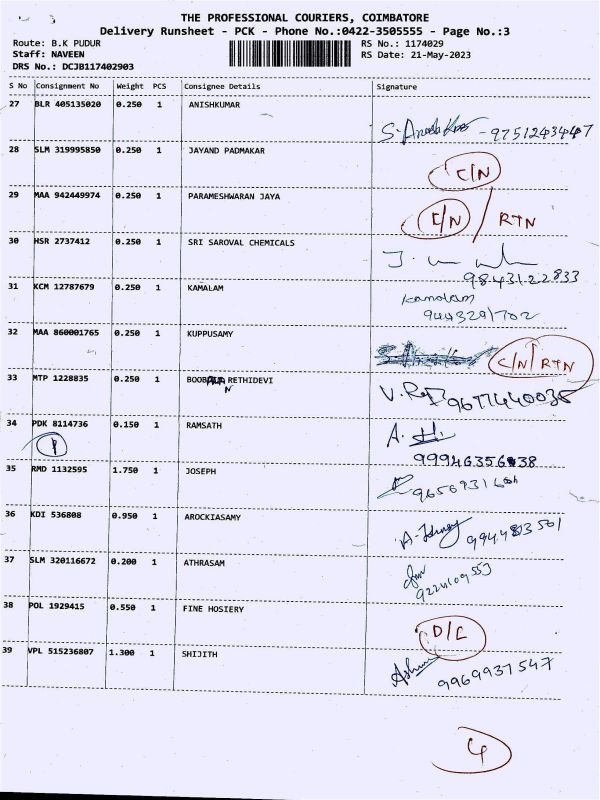 THE PROFESSIONAL COURIERS, COIMBATORE
Delivery Runsheet - PCK - Phone No.:0422-3505555 - Page No.:3
Route: B.K PUDUR RS No.: 1174029
Staff: NAVEEN RS Date: 21-May-2023
DRS No.: DCJB117402903
S No Consignment No Weight PCS Consignee Details Signature
27 BLR 405135020 0.250 1 ANISHKUMAR
9751243447
28 SLM 319995850 0.250 1 JAYAND PADMAKAR
C/N
29 MAA 942449974 0.250 1 PARAMESHWARAN JAYA
C/N / RTN
30 HSR 2737412 0.250 1 SRI SAROVAL CHEMICALS
9843122833
31 KCM 12787679 0.250 1 KAMALAM
Kamalam
9443291702
32 MAA 860001765 0.250 1 KUPPUSAMY
C/N / RTN
33 MTP 1228835 0.250 1 RETHIDEVI
9677440035
34 PDK 8114736 0.150 1 RAMSATH
A.
35 RMD 1132595 1.750 1 JOSEPH
36 KDI 536808 0.950 1 AROCKIASAMY
37 SLM 320116672 0.200 1 ATHRASAM
38 POL 1929415 0.550 1 FINE HOSIERY
D/L
39 VPL 515236807 1.300 1 SHIJITH
9969937547
4